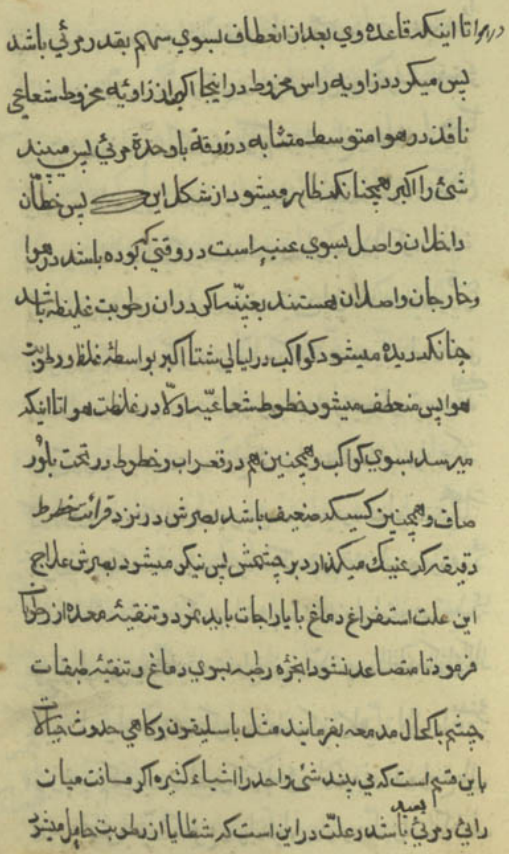 در هوا تا اینکه قاعده وی بعد از انعطاف بسوي سهم بقدر مرئي باشد
پس میکردد زاویه راس مخروط در اینجا اکبر از زاوئیه مخروط شعاعي
نافذ در هوا متوسط متشابه در رقة با وحدة مرئي پس میبیند
شئ را اکبر همچنانکه ظاهر میشود از شکل این پس خطان
داخلان واصل بسوي عنبه است در وقتي که بوده باشد در هوا
وخارجان واصلان هستند بعینه اکر در ان رطوبت غلیظه باشد
چنانکه دیده میشود کواکب در لیالي شتا اکبر بواسطه غلظ ورطوبت
هوا پس منعطف میشود خطوط شعاعیه اولا در غلظت هوا تا اینکه
میرسد بسوي کواکب و همچنین هم در قعر اب وخطوط در تحت بلور
صاف و همچنین کسیکه ضعیف باشد بصرش در نزد قرائت خطوط
دقیقه که عنیك میکذارد بر چشمش پس نیکو میشود بصرش علاج
این علت استفراغ دماغ با یارجات باید نمود و تنقیه معده از رطوبات
فرمود تا متصاعد نشود ابخره رطبه بسوي دماغ و تنقیه طبقات
چشم باکحال مدمعه بفرمایند مثل باسلیقون وکاهي حدوث خیالات
باین قسم است که مي بیند شئ واحد را اشیاء کثیره اکر مسافت میان
رائي ومرئي بعید باشد وعلت در این است که شظایا از رطوبت حایل میشود